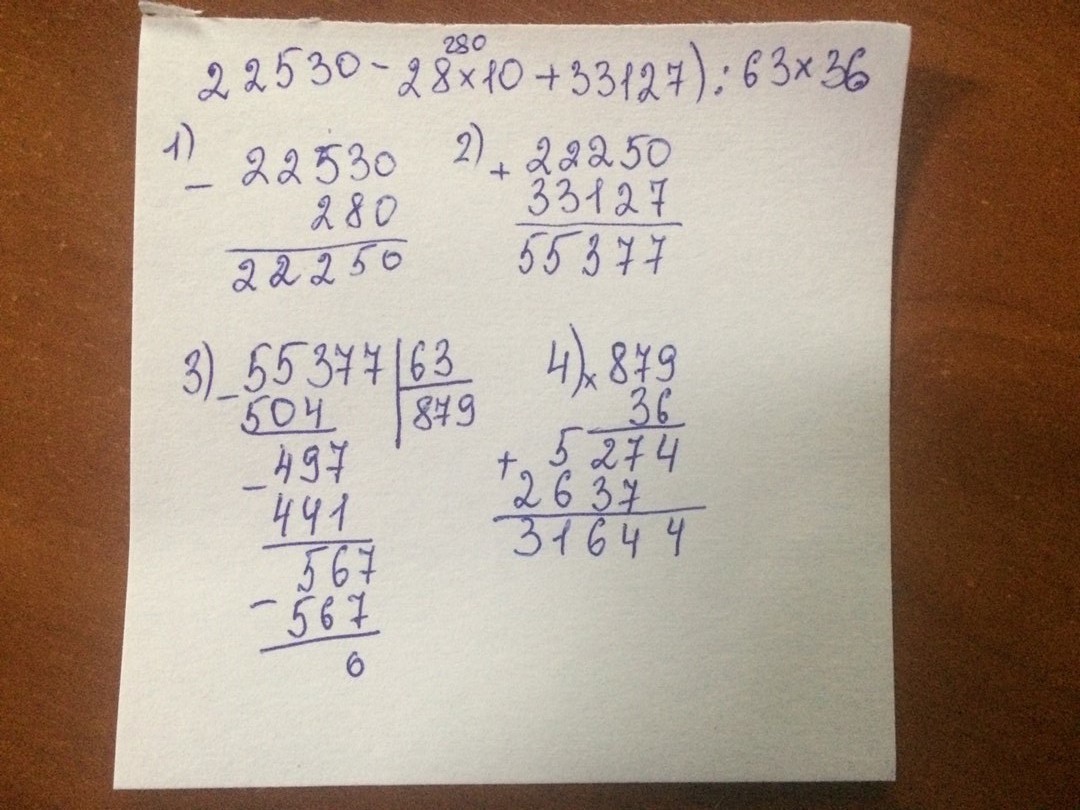 280
22530 - 28×10 + 33127) : 63×36
1) - 22530
280
22250
2) + 22250
33127
55377
3) - 55377 | 63
504 | 879
- 497
441
567
- 567
0
4) × 879
36
+ 5274
2637
31644